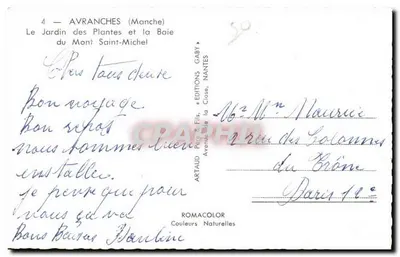 4 — AVRANCHES (Manche)
Le Jardin des Plantes et la Baie
du Mont Saint-Michel
tous deux
Bon voyage
Bon repos
nous sommes bien
installer.
je pense que pour
vous ça va
Bons Baisers Pauline
ARTAUD Père et Fils, "EDITIONS GABY"
Avenue de la Close, NANTES
Mr Mme Maurice
2 rue des Colonnes
du Trône
Paris 12e
ROMACOLOR
Couleurs Naturelles